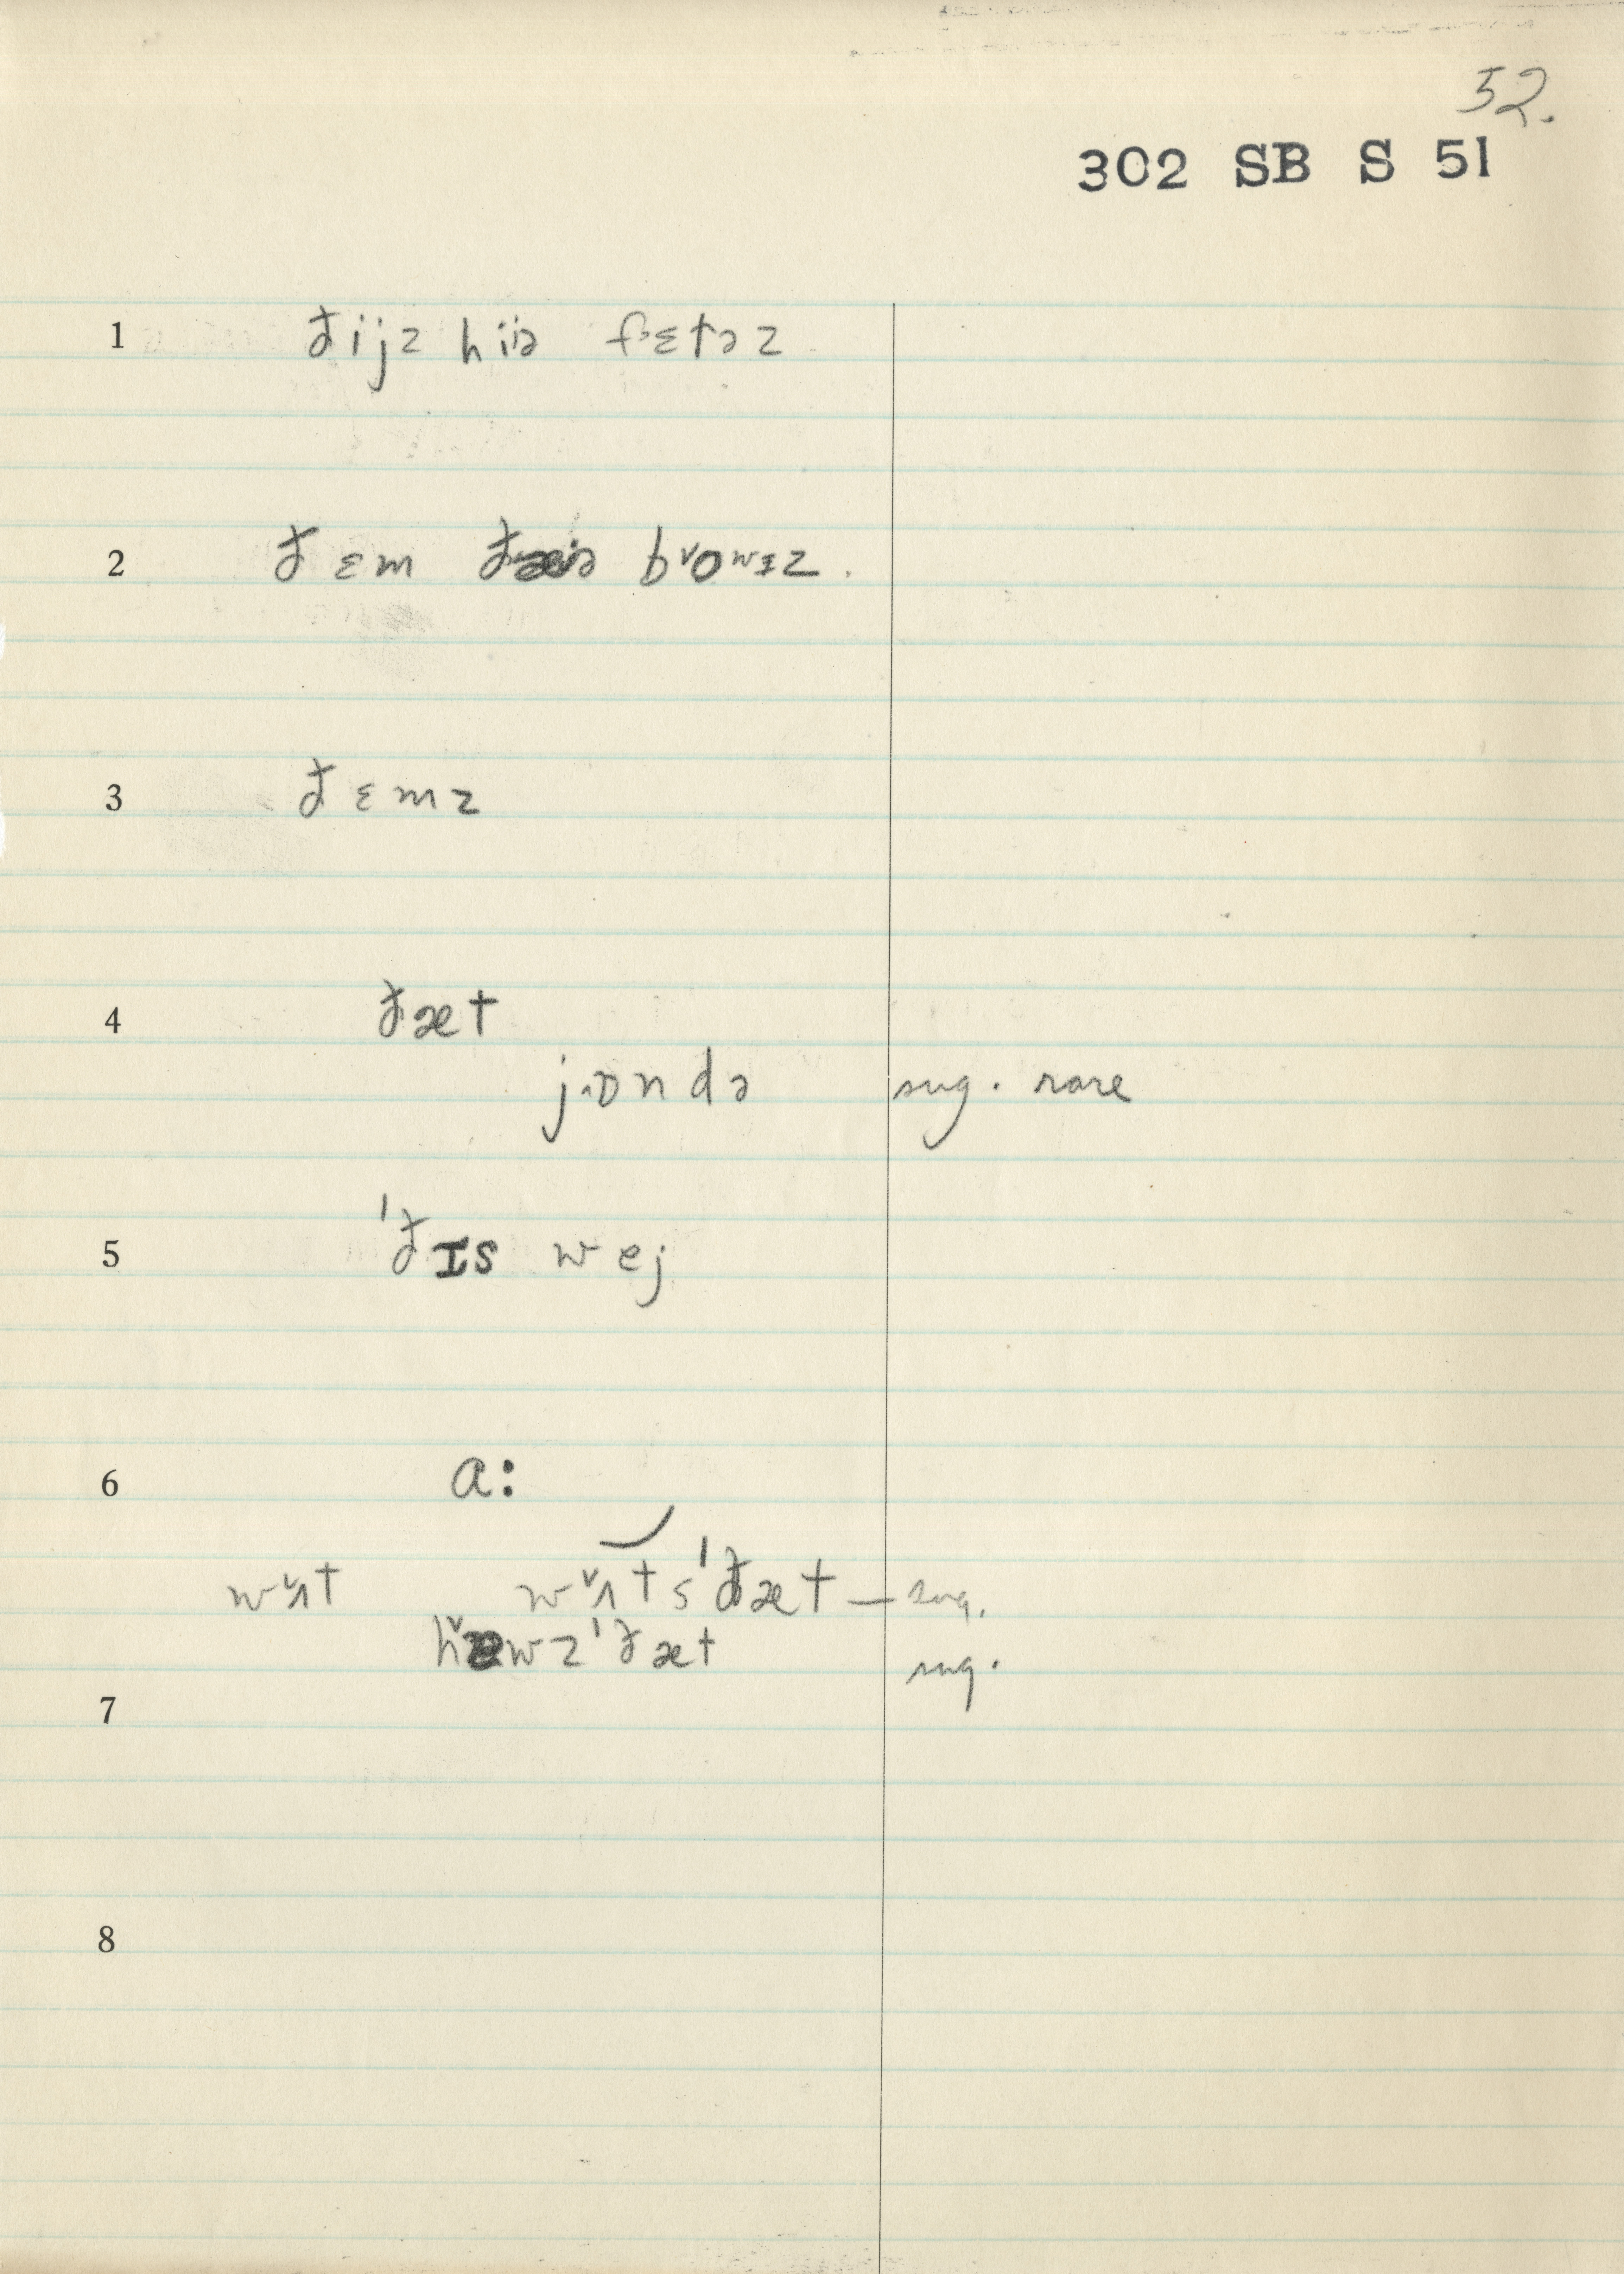 52.
302 SB S 51
1 ðijz hiə fɛtəz
2 ðɛm b˅owɪz.
3 ðɛmz
4 ðæt
jɒndə sug. rare
5 'ðɪs wej
6 a:
w˅ʌt w˅ʌts'ðæt — sug.
'ðæt sug.
7
8